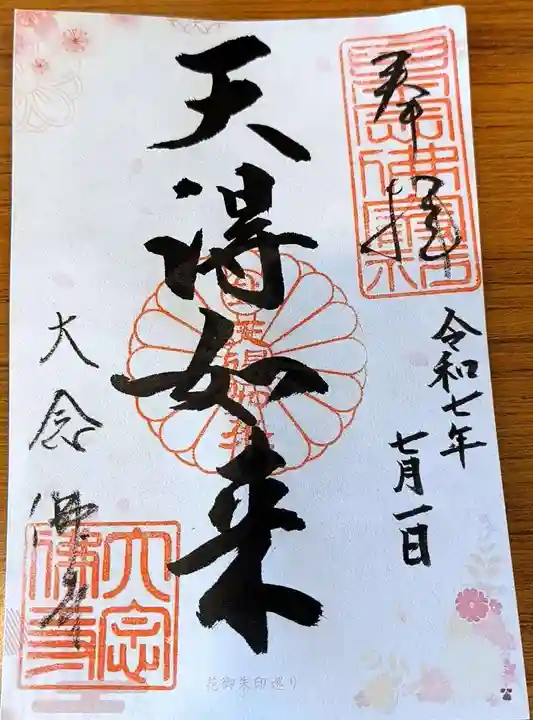 奉拝
令和七年
七月一日
天得如来
大念佛寺
大念佛寺
花御朱印巡り